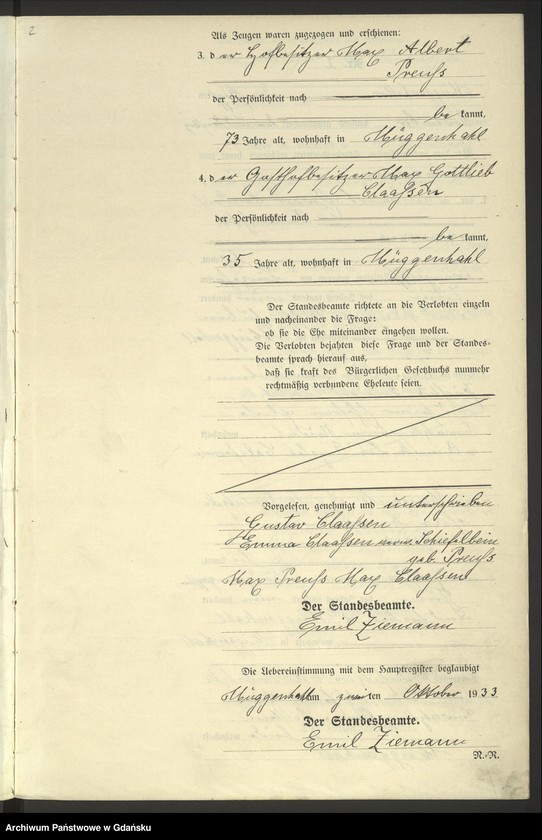 2
Als Zeugen waren zugezogen und erschienen:
3. der Hofbesitzer Max Albert
Preuß
der Persönlichkeit nach
bekannt,
73 Jahre alt, wohnhaft in Müggenhahl
4. der Gasthofbesitzer Max Gottlieb
Claaßen
der Persönlichkeit nach
bekannt,
35 Jahre alt, wohnhaft in Müggenhahl
Der Standesbeamte richtete an die Verlobten einzeln
und nacheinander die Frage:
ob sie die Ehe miteinander eingehen wollen.
Die Verlobten bejahten diese Frage und der Standes-
beamte sprach hierauf aus,
daß sie kraft des Bürgerlichen Gesetzbuchs nunmehr
rechtmäßig verbundene Eheleute seien.
Vorgelesen, genehmigt und unterschrieben
Gustav Claaßen
Emma Claaßen verw. Schiefelbein
geb. Preuß
Max Preuß Max Claaßen
Der Standesbeamte.
Emil Ziemann
Die Uebereinstimmung mit dem Hauptregister beglaubigt
Müggenhahl am zweiten Oktober 1933
Der Standesbeamte.
Emil Ziemann
N.-R.
Archiwum Państwowe w Gdańsku